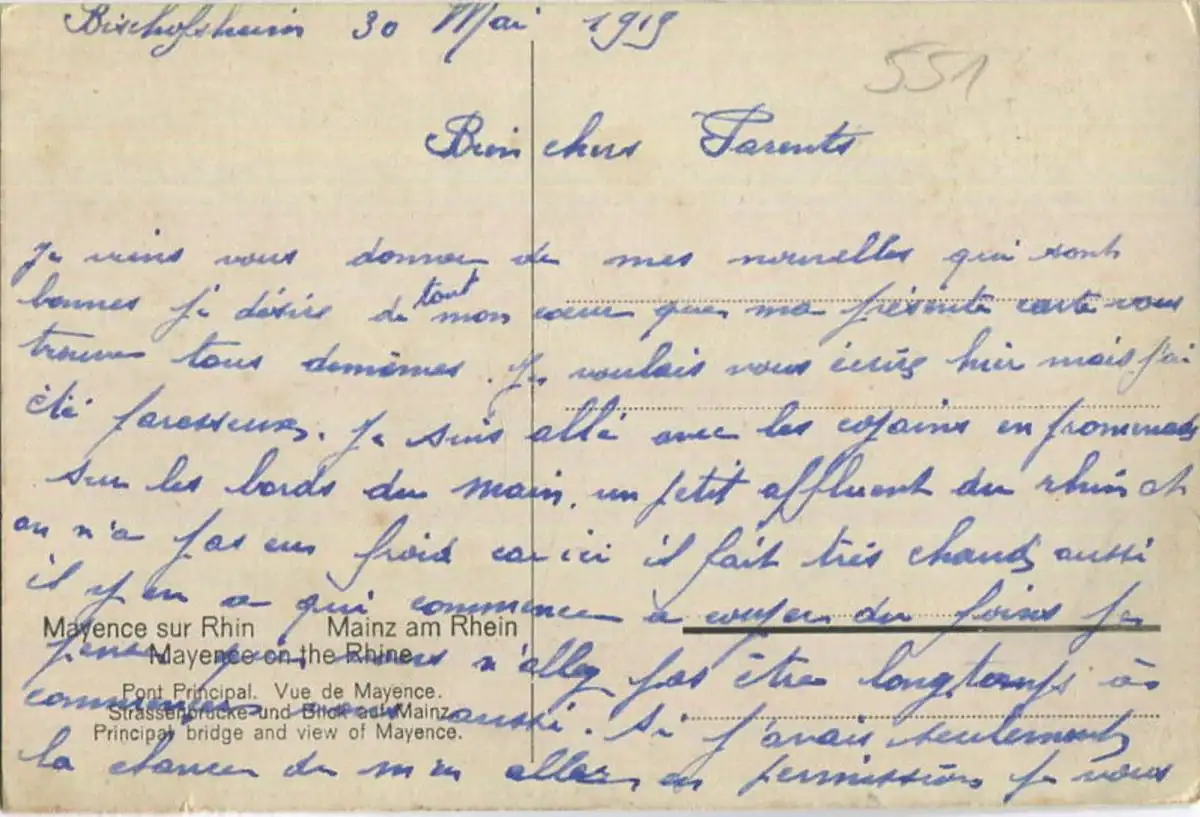 Bischofsheim 30 Mai 1919
551
Bien chers Parents
Je viens vous donner de mes nouvelles qui sont
bonnes je désire de tout mon cœur que ma présente carte vous
trouve tous demêmes. Je voulais vous écrire hier mais j'ai
été paresseux. Je suis allé avec les copains en promenade
sur les bords du main, un petit affluent du rhin et
on n'a pas eu froid car ici il fait très chaud aussi
il y en a qui commence à couper du foins je
pense que vous n'allez pas être longtemps à
commencer vous aussi. Si j'avais seulement
la chance de m'en aller en permission je vous
Mayence sur Rhin Mainz am Rhein
Mayence on the Rhine
Pont Principal. Vue de Mayence.
Strassenbrücke und Blick auf Mainz.
Principal bridge and view of Mayence.